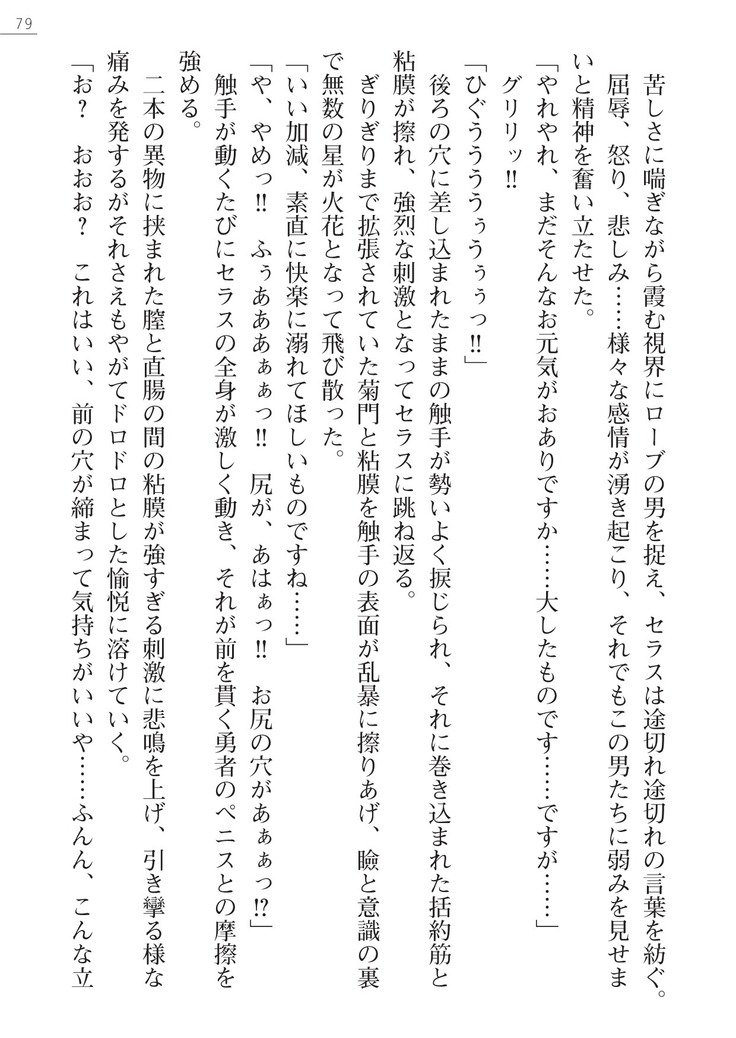 79
苦しさに喘ぎながら霞む視界にローブの男を捉え、セラスは途切れ途切れの言葉を紡ぐ。
屈辱、怒り、悲しみ……様々な感情が湧き起こり、それでもこの男たちに弱みを見せま
いと精神を奮い立たせた。
「やれやれ、まだそんなお元気がおありですか……大したものです……ですが……」
グリリッ‼
「ひぐううううぅうぅぅっ‼」
後ろの穴に差し込まれたままの触手が勢いよく捩じられ、それに巻き込まれた括約筋と
粘膜が擦れ、強烈な刺激となってセラスに跳ね返る。
ぎりぎりまで拡張されていた菊門と粘膜を触手の表面が乱暴に擦りあげ、瞼と意識の裏
で無数の星が火花となって飛び散った。
「いい加減、素直に快楽に溺れてほしいものですね……」
「や、やめっ‼　ふぅあああぁぁっ‼　尻が、あはぁっ‼　お尻の穴があぁぁっ⁉」
触手が動くたびにセラスの全身が激しく動き、それが前を貫く勇者のペニスとの摩擦を
強める。
二本の異物に挟まれた膣と直腸の間の粘膜が強すぎる刺激に悲鳴を上げ、引き攣る様な
痛みを発するがそれさえもやがてドロドロとした愉悦に溶けていく。
「お？　おおお？　これはいい、前の穴が締まって気持ちがいいや……ふんん、こんな立